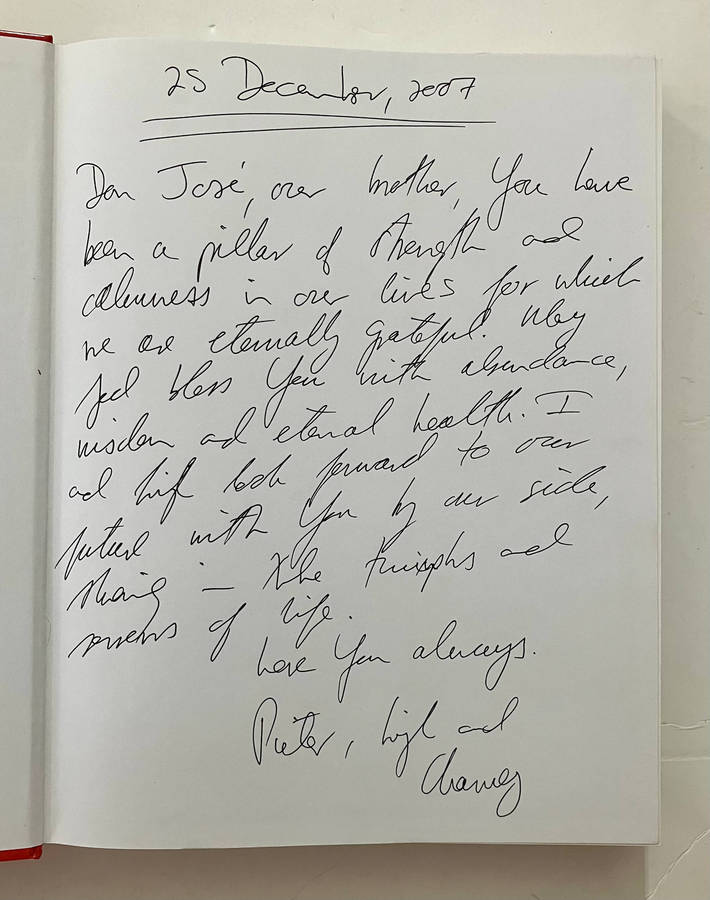 25 December, 2007
Don José, our brother, You have
been a pillar of strength and
calmness in our lives for which
we are eternally grateful. May
god bless You with abundance,
wisdom and eternal health. I
and look forward to our
future with You by our side,
sharing in the triumphs and
sorrows of life.
Love You always.
Pieter, and